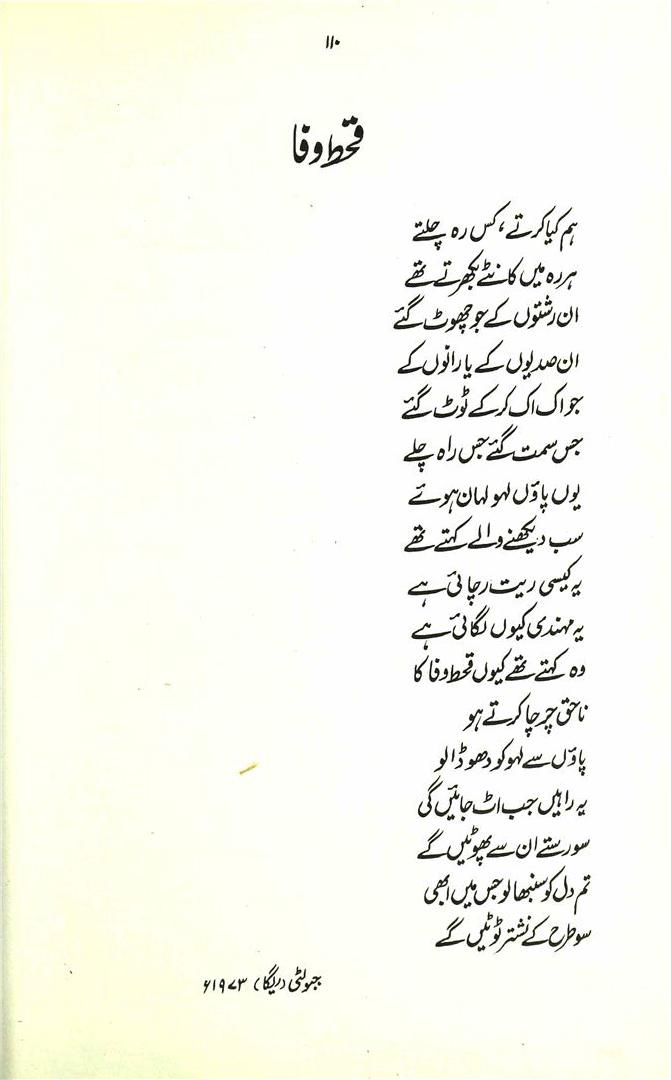 ۱۱۰
قحط وفا
ہم کیا کرتے، کس رہ چلتے
ہر رہ میں کانٹے بکھرتے تھے
ان رشتوں کے جو چھوٹ گئے
ان صدیوں کے یارانوں کے
جو اک اک کرکے ٹوٹ گئے
جس سمت گئے جس راہ چلے
یوں پاؤں لہو لہان ہوئے
سب دیکھنے والے کہتے تھے
یہ کیسی ریت رچائی ہے
یہ مہندی کیوں لگائی ہے
وہ کہتے تھے کیوں قحط وفا کا
ناحق چرچا کرتے ہو
پاؤں سے لہو کو دھو ڈالو
یہ راہیں جب اٹ جائیں گی
سو رستے ان سے پھوٹیں گے
تم دل کو سنبھالو جس میں ابھی
سو طرح کے نشتر ٹوٹیں گے
۱۹۷۳ء